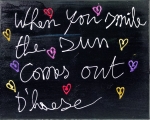 When you smile
the sun
comes out
D'hoese